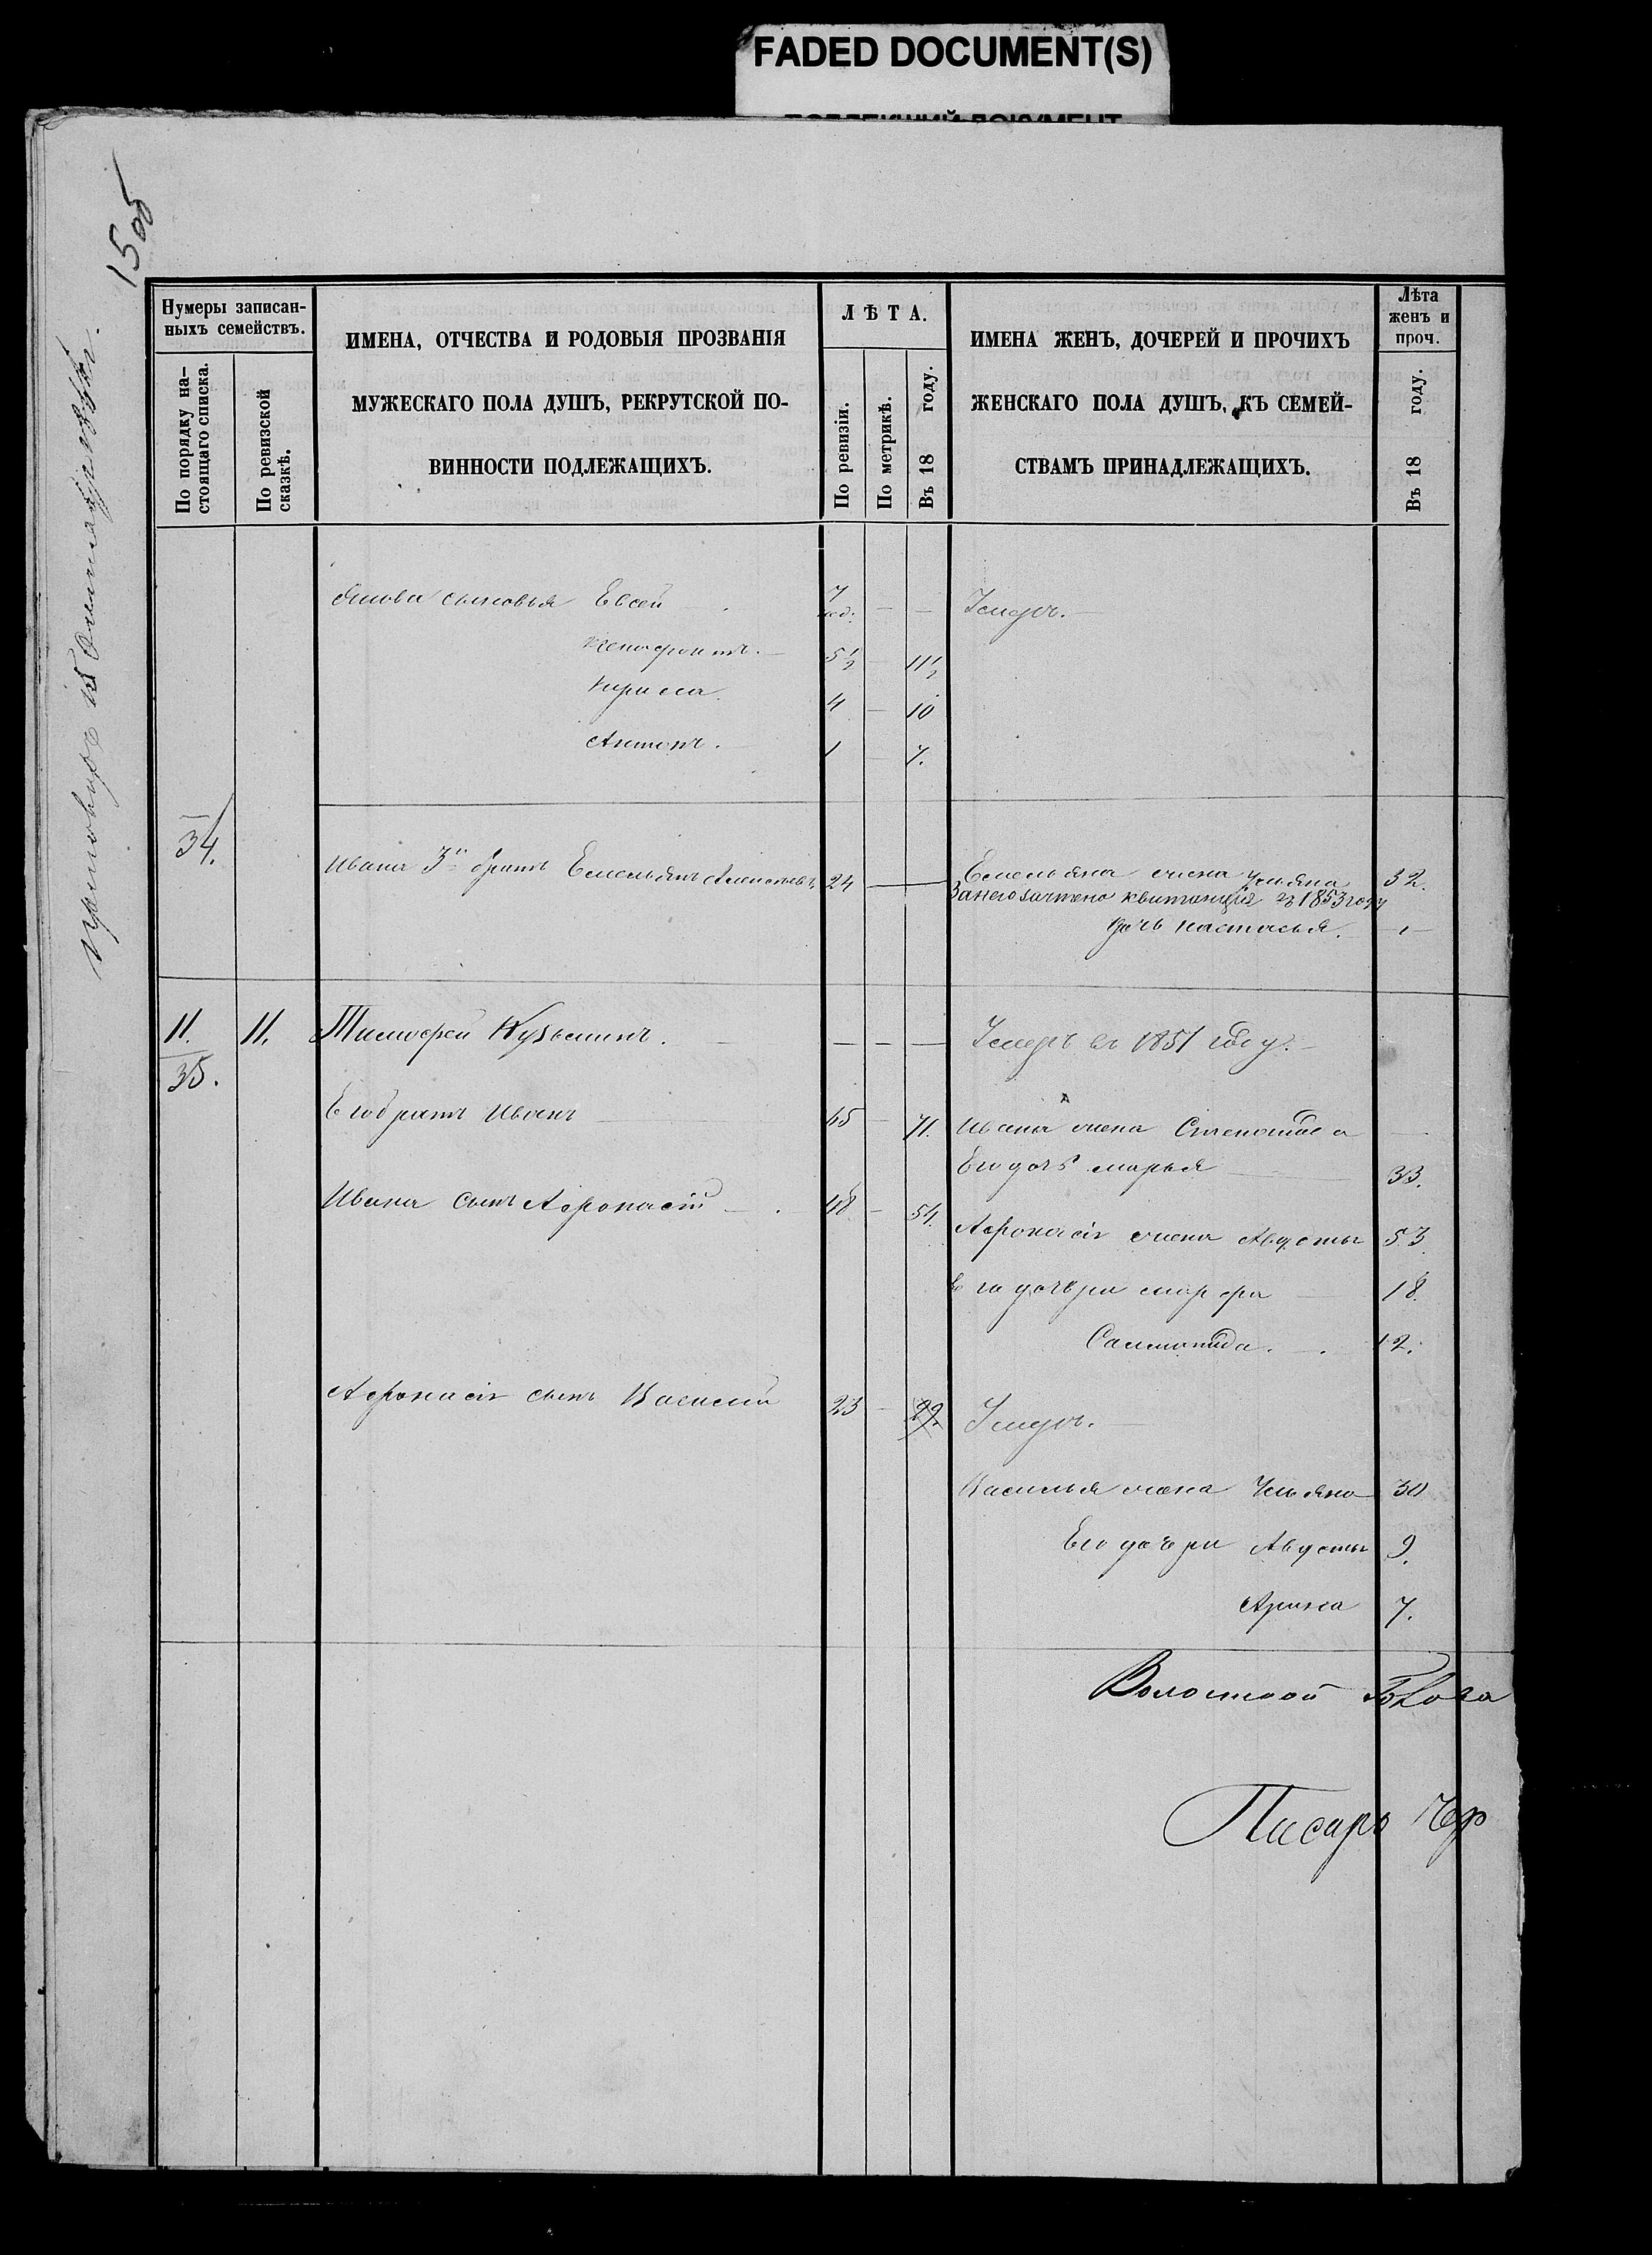 FADED DOCUMENT(S)
15 об
Нумеры записан-
ныхъ семействъ.
По порядку на-
стоящаго списка.
По ревизской
сказкѣ.
ИМЕНА, ОТЧЕСТВА И РОДОВЫЯ ПРОЗВАНІЯ
МУЖЕСКАГО ПОЛА ДУШЪ, РЕКРУТСКОЙ ПО-
ВИННОСТИ ПОДЛЕЖАЩИХЪ.
ЛѢТА.
По ревизіи.
По метрикѣ.
Въ 18 году.
ИМЕНА ЖЕНЪ, ДОЧЕРЕЙ И ПРОЧИХЪ
ЖЕНСКАГО ПОЛА ДУШЪ, КЪ СЕМЕЙ-
СТВАМЪ ПРИНАДЛЕЖАЩИХЪ.
Лѣта
женъ и
проч.
Въ 18 году.
Якова сыновья Евсей 7 нед. — — Умеръ.
Ксенофонтъ. 5½ — 11½
Кирила 4 — 10
Антонъ. 1 — 7.
34. Ивана 3й братъ Емельянъ Алексѣевъ 24 — Емельяна жена Ульяна 32.
За него зачтено квитанція въ 1853 году
дочь Настасья. 1
11. 11. Тимофей Кузьминъ. — — — Умеръ въ 1851 году.
35.
Его братъ Иванъ 65 — 71. Ивана жена Степанида —
Его дочь Марья 33.
Ивана сынъ Афонасій 48 — 54. Афонасія жена Авдотья 53.
Его дочери Марфа 18.
Соломонида. 12.
Афонасія сынъ Василій 23 — 29. Умеръ.
Василья жена Ульяна 30
Его дочери Авдотья 9.
Арина 7.
Волостной Голова
Писарь